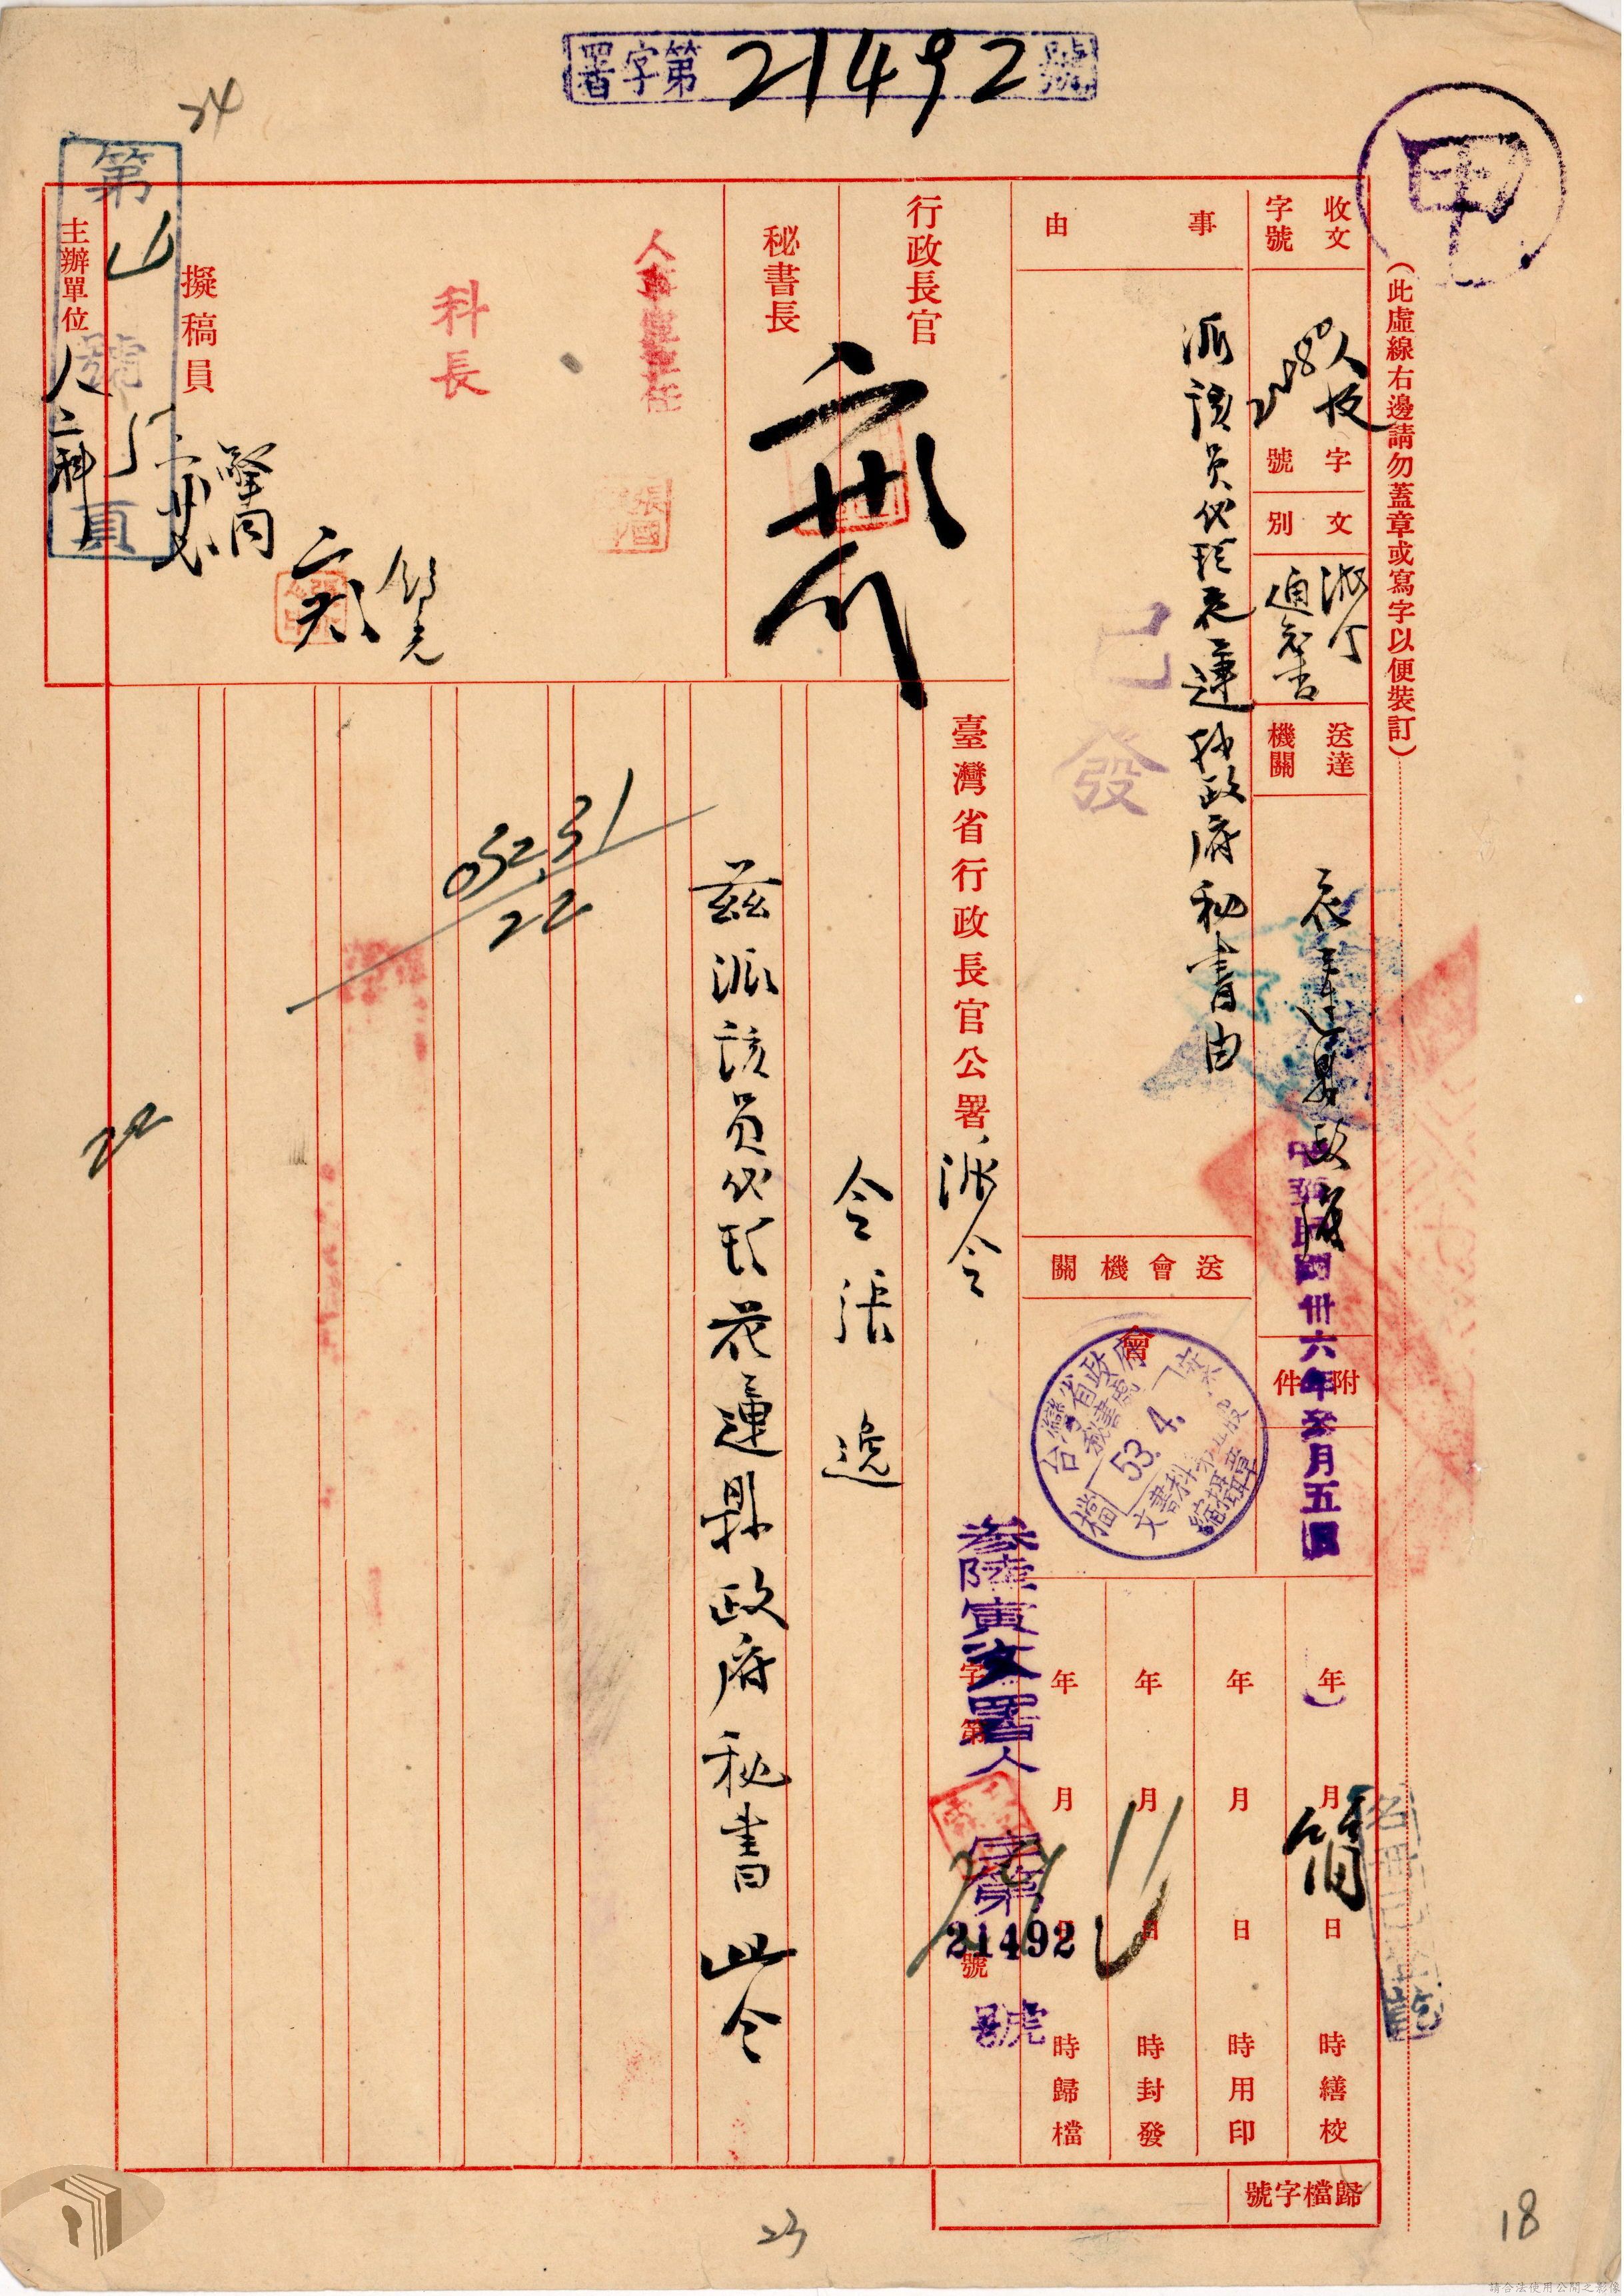 署字第21492號
甲
24
(此虛線右邊請勿蓋章或寫字以便裝訂)
收文
字號
字
號
文
別
派令
通知書
送達
機關
花蓮縣政府
附
件
中華民國卅六年叁月五日
事
由
派該員代理花蓮縣政府秘書由
已發
送會機關
會
台灣省政府
秘書處
53.4.
文書科
檔
年 月 日 時 繕校
年 月 日 時 用印
年 月 日 時 封發
年 月 日 時 歸檔
簡
歸檔字號
行政長官
秘書長
人事室主任
科長
擬稿員
主辦單位
人二科
第 號 頁
臺灣省行政長官公署
派令
字第 號
叁陸寅
署人
字第
21492
號
令張逸
茲派該員代理花蓮縣政府秘書此令
22
22
23
18
請合法使用公開之影像